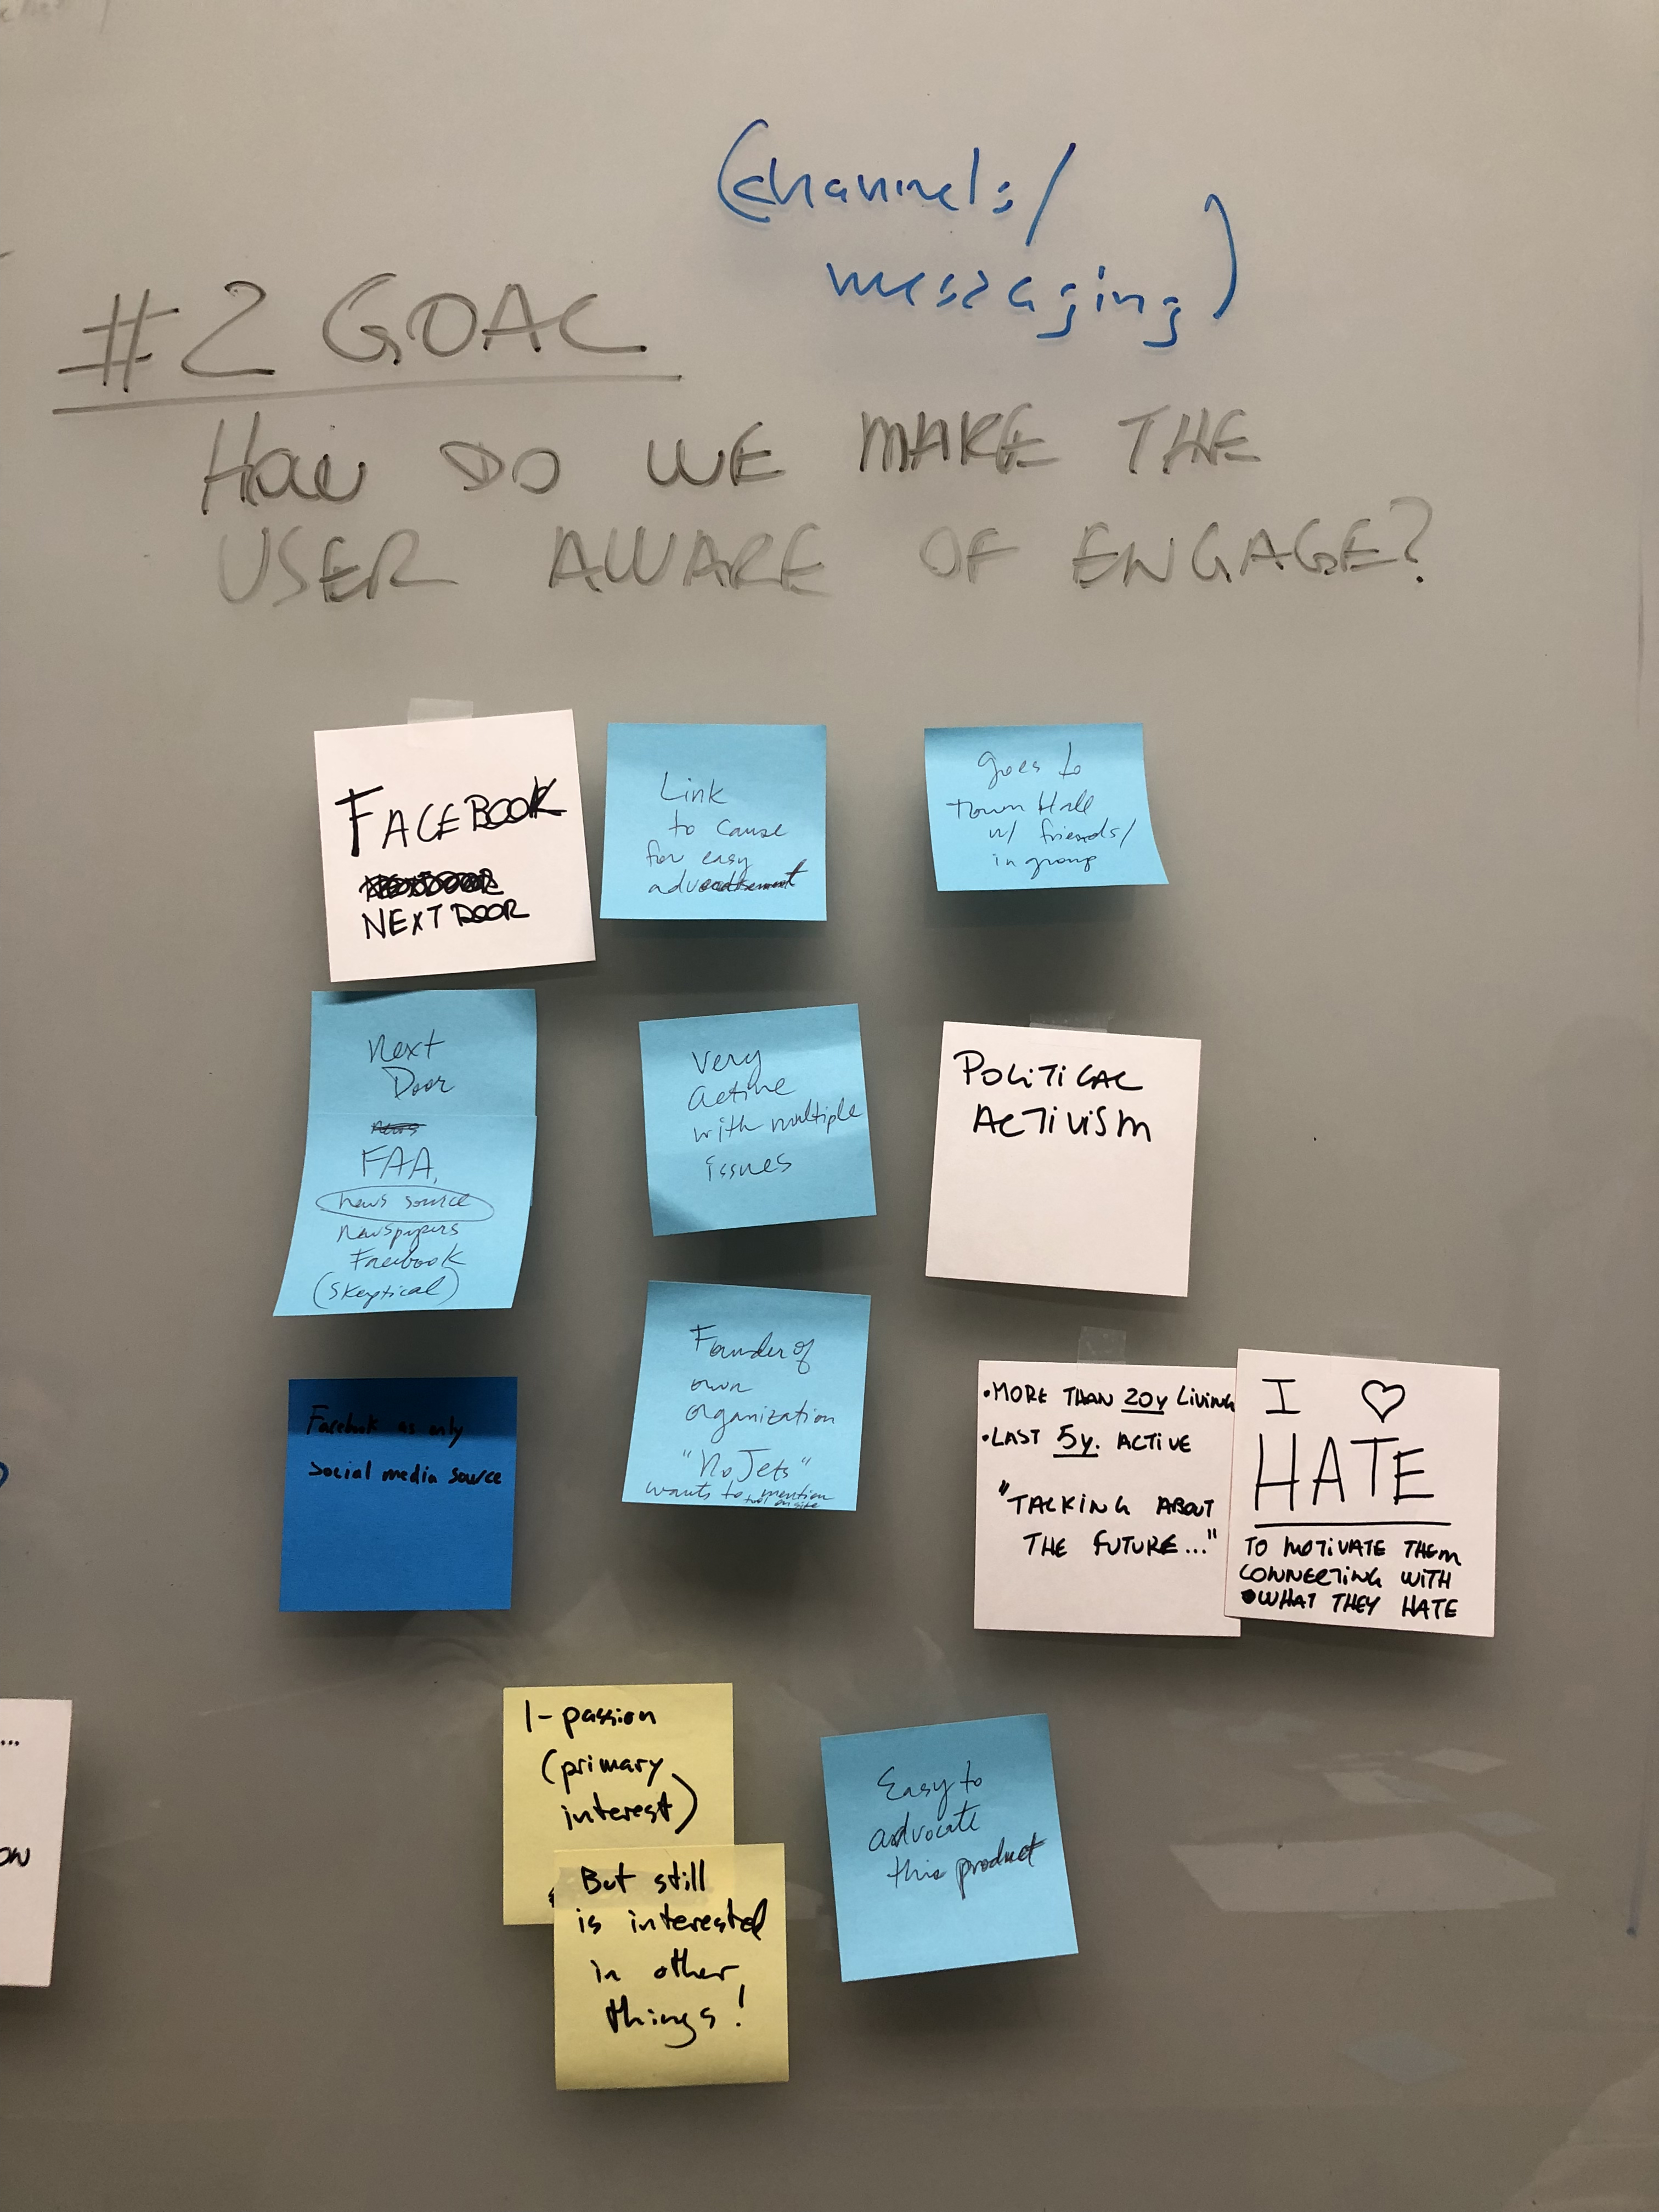 (channels/
messaging)
#2 GOAL
HOW DO WE MAKE THE
USER AWARE OF ENGAGE?
FACEBOOK
NEXTDOOR
NEXTDOOR
Link
to cause
for easy
goes to
Town Hall
w/ friends/
in group
Next
Door
news
FAA,
news source
Newspapers
Facebook
(skeptical)
Very
active
with multiple
issues
POLITICAL
ACTIVISM
Facebook as only
social media source
Founder of
own
organization
"No Jets"
wants to mention
on site
• MORE THAN 20y LIVING
• LAST 5y. ACTIVE
"TALKING ABOUT
THE FUTURE..."
I ♡
HATE
TO MOTIVATE THEM
CONNECTING WITH
WHAT THEY HATE
1- passion
(primary
interest)
But still
is interested
in other
things!
Easy to
advocate
this product
...
OW